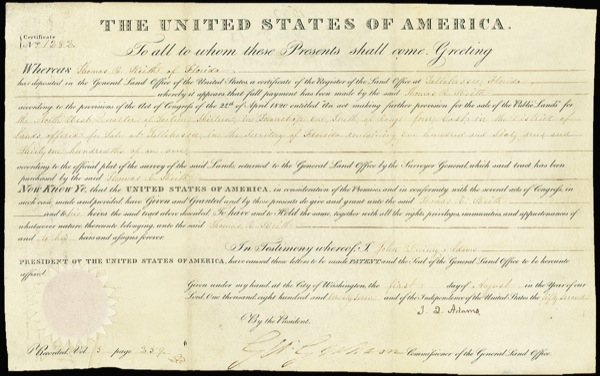 THE UNITED STATES OF AMERICA.
Certificate
No. 1282
To all to whom these Presents shall come, Greeting
Whereas Thomas of Florida
has deposited in the General Land Office of the United States, a certificate of the Register of the Land Office at Tallahassee, Florida
whereby it appears that full payment has been made by the said Thomas
according to the provisions of the Act of Congress of the 22nd of April 1820 entitled "An act making further provision for the sale of the Public Lands" for
the North West Quarter of Section in Township one South of Range four East in the district of
Lands offered for Sale at Tallahassee, in the Territory of Florida containing one hundred and Sixty and
hundredths of an acre
according to the official plat of the survey of the said Lands, returned to the General Land Office by the Surveyor General, which said tract has been
purchased by the said Thomas
Now Know Ye, that the UNITED STATES OF AMERICA, in consideration of the Premises, and in conformity with the several acts of Congress, in
such case, made and provided Have Given and Granted and by these presents do give and grant unto the said Thomas
and to his heirs the said tract above described To have and to Hold the same, together with all the rights, privileges, immunities, and appurtenances of
whatsoever nature thereunto belonging, unto the said Thomas
and to his heirs and assigns forever.
In Testimony whereof, I John Quincy Adams
PRESIDENT OF THE UNITED STATES OF AMERICA, have caused these letters to be made PATENT, and the Seal of the General Land Office to be hereunto
affixed
Given under my hand, at the City of Washington, the first day of August in the Year of our
Lord One thousand eight hundred and twenty seven and of the Independence of the United States the fifty second
J. Q. Adams
By the President.
Commissioner of the General Land Office.
Recorded, Vol 3 page 339